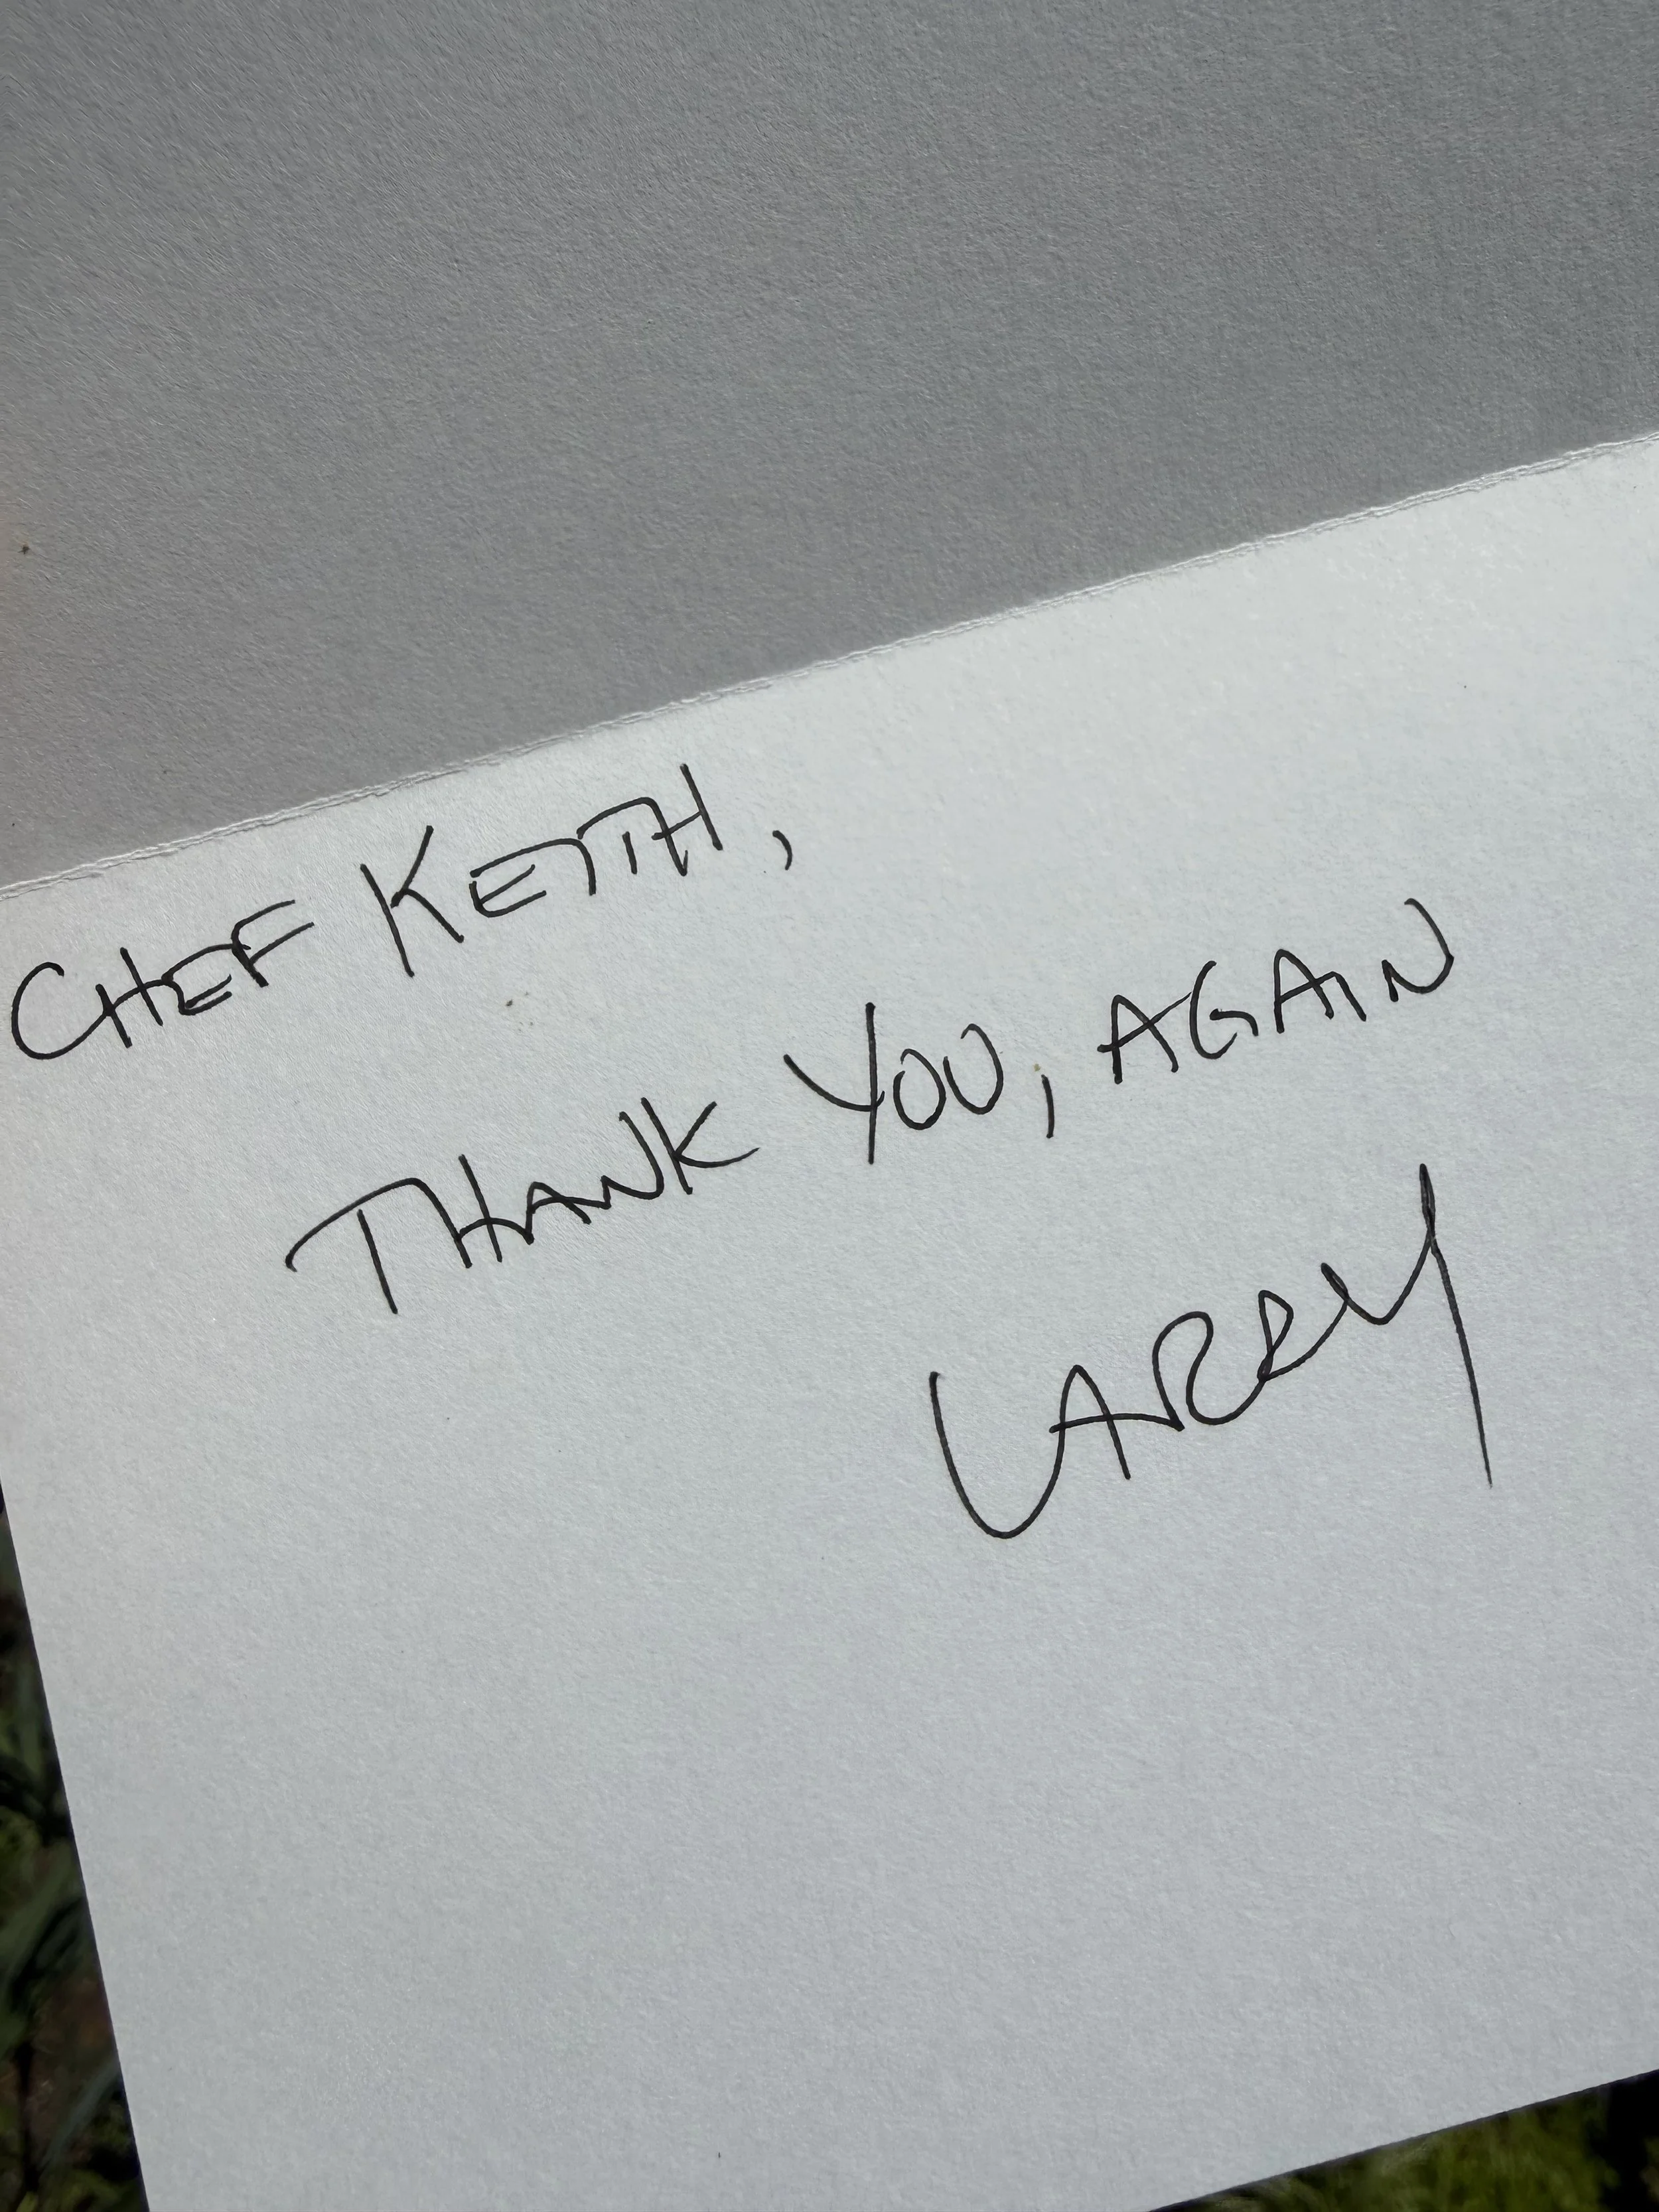 CHEF KEITH,
THANK YOU, AGAIN
LARRY